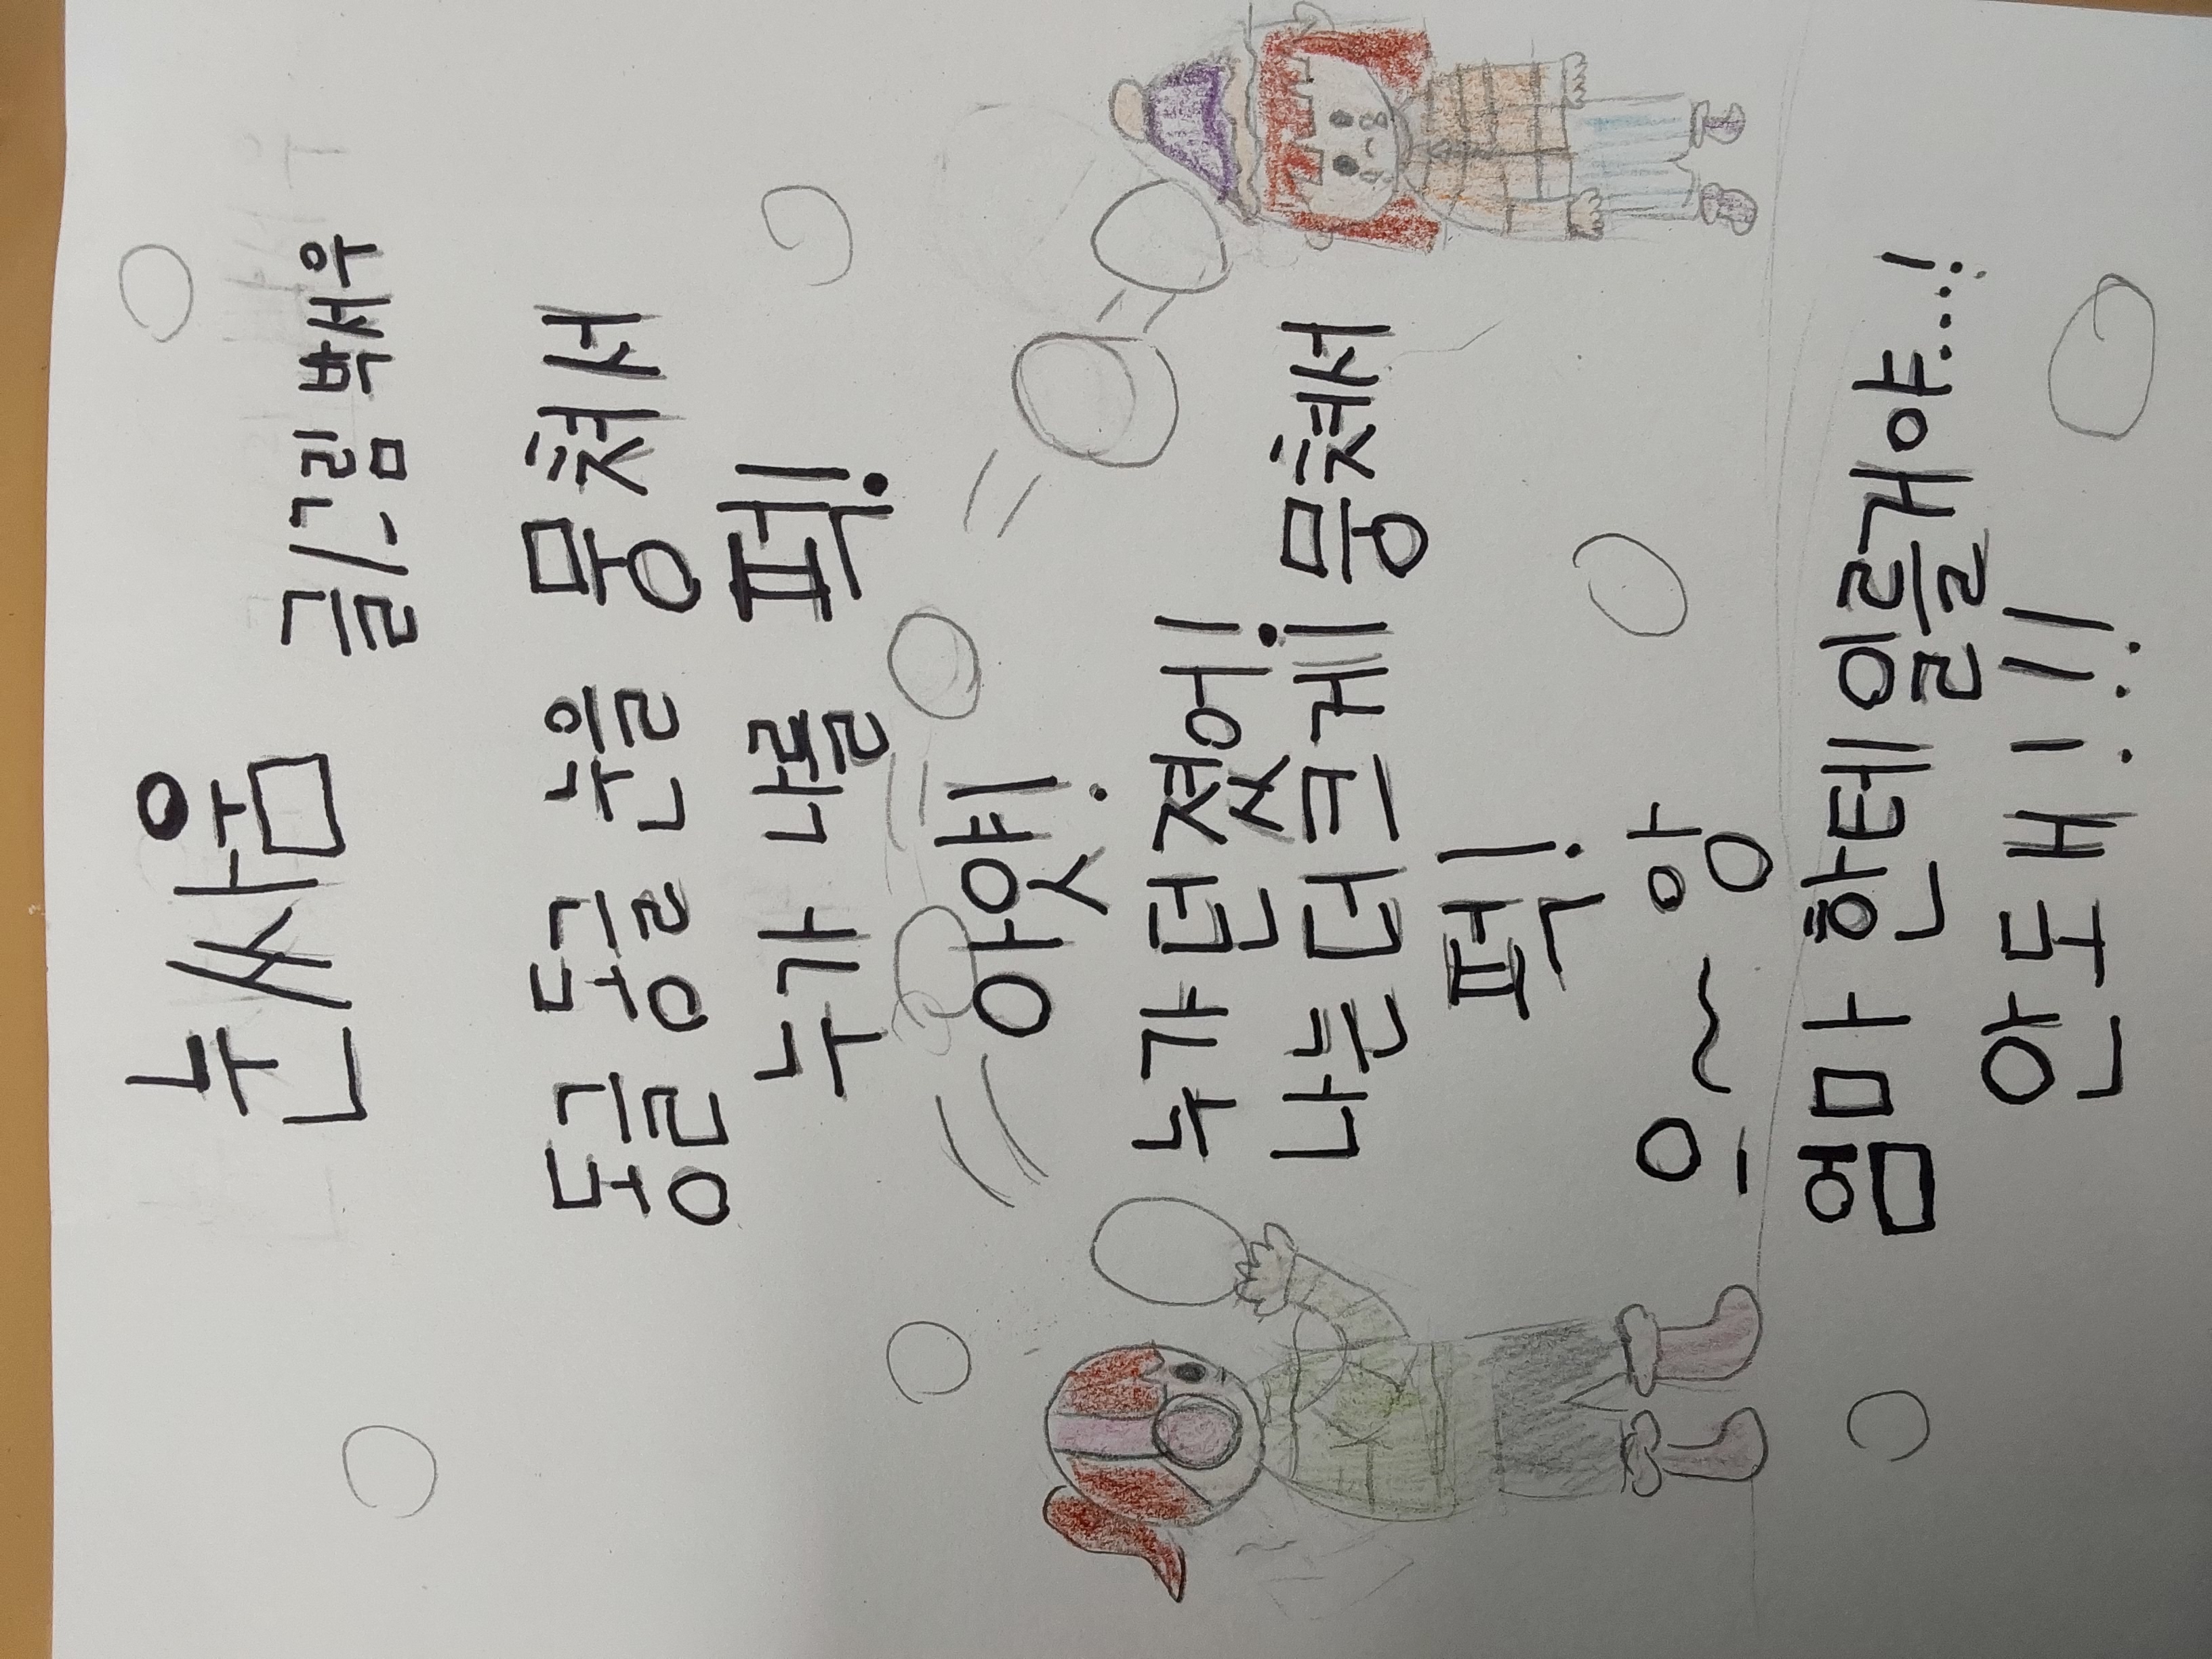 눈싸움
글/그림 박서우
동글 동글 눈을 뭉쳐서
누가 나를 퍽!
아얏!
누가 던졌어!
나는 더 크게 뭉쳐서
퍽!
으~앙
엄마 한테 일를거야...!
안돼!!!